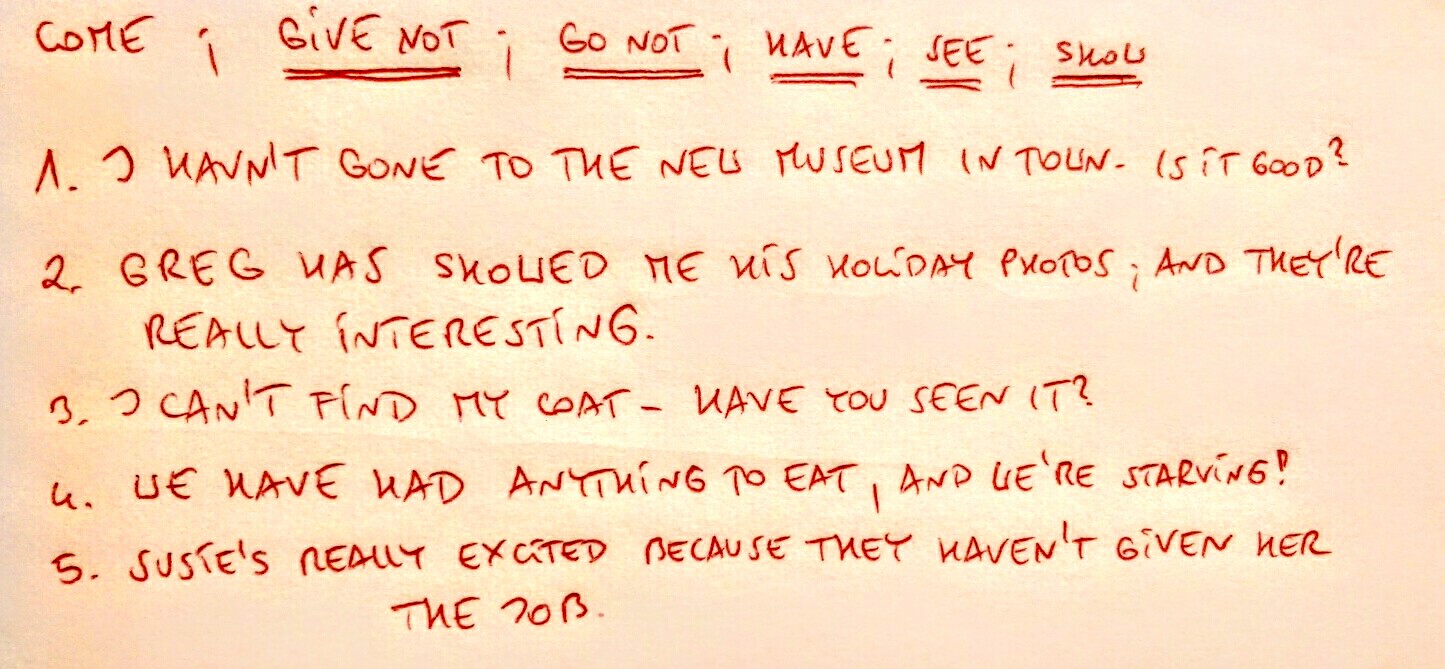 COME ; GIVE NOT ; GO NOT ; HAVE ; SEE ; SHOW
1. I HAVN'T GONE TO THE NEW MUSEUM IN TOWN. IS IT GOOD?
2. GREG HAS SHOWED ME HIS HOLIDAY PHOTOS ; AND THEY'RE
REALLY INTERESTING.
3. I CAN'T FIND MY COAT - HAVE YOU SEEN IT?
4. WE HAVE HAD ANYTHING TO EAT, AND WE'RE STARVING!
5. SUSIE'S REALLY EXCITED BECAUSE THEY HAVEN'T GIVEN HER
THE JOB.